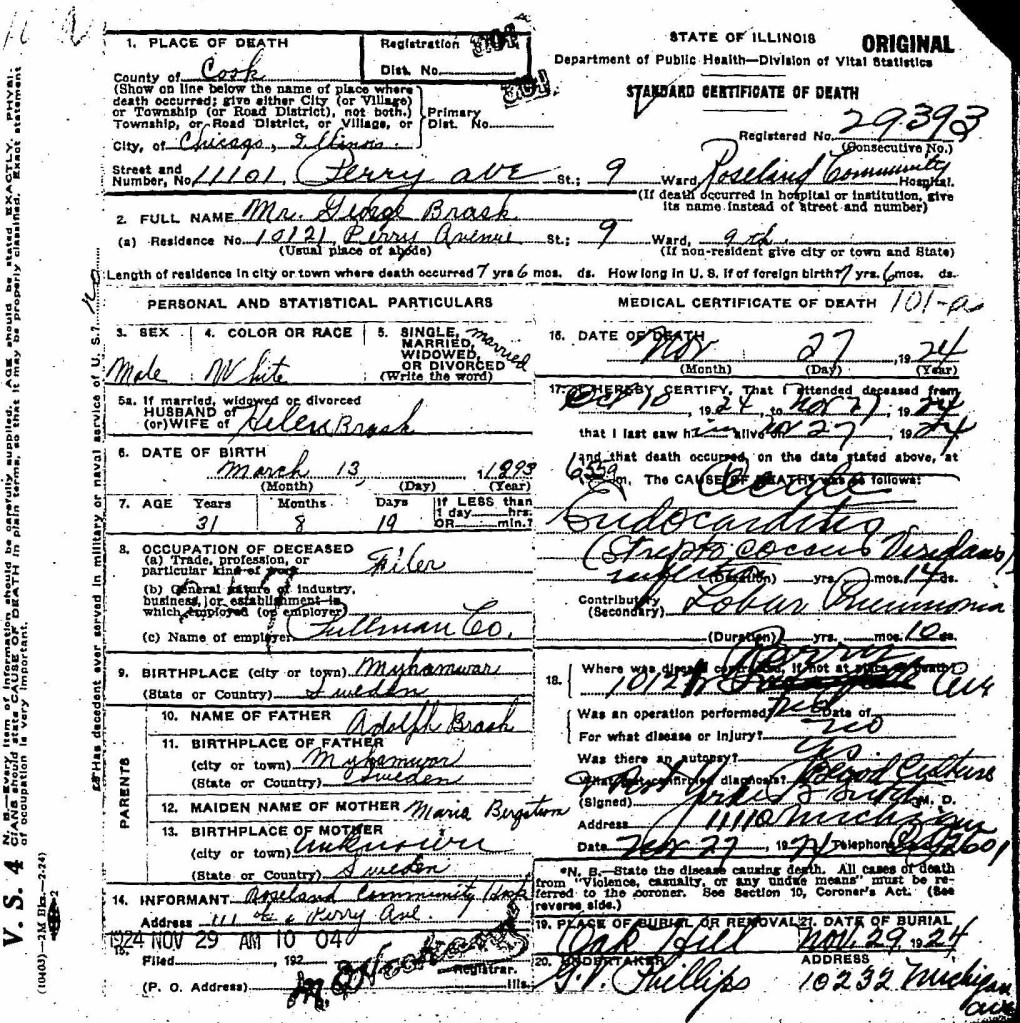 STATE OF ILLINOIS ORIGINAL
Department of Public Health—Division of Vital Statistics
STANDARD CERTIFICATE OF DEATH
1. PLACE OF DEATH
Registration
Dist. No.
County of Cook
(Show on line below the name of place where
death occurred; give either City (or Village)
or Township (or Road District), not both.)
Township, or Road District, or Village, or
Primary
Dist. No.
Registered No. 29393
(Consecutive No.)
City, of Chicago, Illinois.
Street and
Number, No. 11101 Perry ave St.; 9 Ward, Roseland Community Hospital.
(If death occurred in hospital or institution, give
its name instead of street and number)
2. FULL NAME Mr. George Brask
(a) Residence No. 10121 Perry Avenue St.; 9 Ward, 9th
(Usual place of abode) (If non-resident give city or town and State)
Length of residence in city or town where death occurred 7 yrs 6 mos. ds. How long in U. S. if of foreign birth? 7 yrs. 6 mos. ds.
PERSONAL AND STATISTICAL PARTICULARS
3. SEX
Male
4. COLOR OR RACE
White
5. SINGLE,
MARRIED,
WIDOWED,
OR DIVORCED
(Write the word)
married
5a. If married, widowed or divorced
HUSBAND of
(or) WIFE of Helen Brask
6. DATE OF BIRTH
March 13, 1893
(Month) (Day) (Year)
7. AGE Years Months Days If LESS than
1 day hrs.
OR min.?
31 8 19
8. OCCUPATION OF DECEASED
(a) Trade, profession, or
particular kind of work Filer
(b) General nature of industry,
business, or establishment in
which employed (or employer)
(c) Name of employer Pullman Co.
9. BIRTHPLACE (city or town)
(State or Country) Sweden
PARENTS
10. NAME OF FATHER Adolph Brask
11. BIRTHPLACE OF FATHER
(city or town)
(State or Country) Sweden
12. MAIDEN NAME OF MOTHER Maria
13. BIRTHPLACE OF MOTHER
(city or town) Unknown
(State or Country) Sweden
14. INFORMANT Roseland Community Hosp
Address 111 th & Perry Ave.
1924 NOV 29 AM 10 04
15.
Filed , 192
Registrar.
(P. O. Address) Ills.
MEDICAL CERTIFICATE OF DEATH 101-a
16. DATE OF DEATH
Nov 27, 1924
(Month) (Day) (Year)
17. I HEREBY CERTIFY, That I attended deceased from
, 1924, to Nov 27, 1924
that I last saw him alive on Nov 27, 1924
and that death occurred, on the date stated above, at
m. The CAUSE OF DEATH was as follows:
Acute
Endocarditis
(Streptococcus Viridans)
(Duration) yrs. mos. 14 ds.
Contributory
(Secondary) Lobar Pneumonia
(Duration) yrs. mos. 10 ds.
18. Where was disease contracted, if not at place of death?
Perry Ave
Was an operation performed? Date of
For what disease or injury? no
Was there an autopsy?
What test confirmed diagnosis? Blood Culture
(Signed) M. D.
Address 11110 Michigan
Date Nov 27, 1924 Telephone
*N. B.—State the disease causing death. All cases of death
from "Violence, casualty, or any undue means" must be re-
ferred to the coroner. See Section 10, Coroner's Act. (See
reverse side.)
19. PLACE OF BURIAL OR REMOVAL
Oak Hill
21. DATE OF BURIAL
Nov. 29, 1924
20. UNDERTAKER
G. V. Phillips
ADDRESS
10232 Michigan
ave
N. B.—Every item of information should be carefully supplied. AGE should be stated EXACTLY. PHYSI-
CIANS should state CAUSE OF DEATH in plain terms, so that it may be properly classified. Exact statement
of occupation is very important.
Has decedent ever served in military or naval service of U. S.?
V. S. 4
(10403)—2M Bks.—2-24)